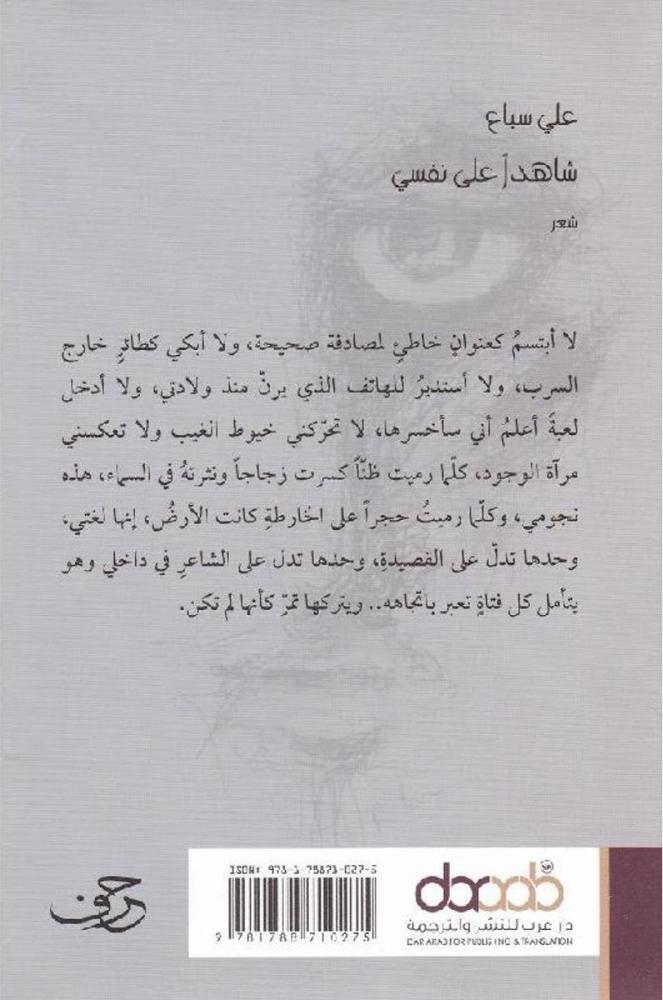 علي سباع
شاهداً على نفسي
شعر
لا أبتسمُ كعنوانٍ خاطئٍ لمصادفة صحيحة، ولا أبكي كطائرٍ خارج
السرب، ولا أستديرُ للهاتف الذي يرنّ منذ ولادتي، ولا أدخل
لعبةً أعلمُ أني سأخسرها، لا تحرّكني خيوط الغيب ولا تعكسني
مرآة الوجود، كلّما رميت ظنّاً كسرت زجاجاً ونثرتهُ في السماء، هذه
نجومي، وكلّما رميتُ حجراً على الخارطةِ كانت الأرضُ، إنها لغتي،
وحدها تدلّ على القصيدةِ، وحدها تدل على الشاعرِ في داخلي وهو
يتأمل كل فتاةٍ تعبر باتجاهه.. ويتركها تمرّ كأنها لم تكن.
حروف
9 781788 710275
daraab
دار عرب للنشر والترجمة
DAR ARAB FOR PUBLISHING & TRANSLATION